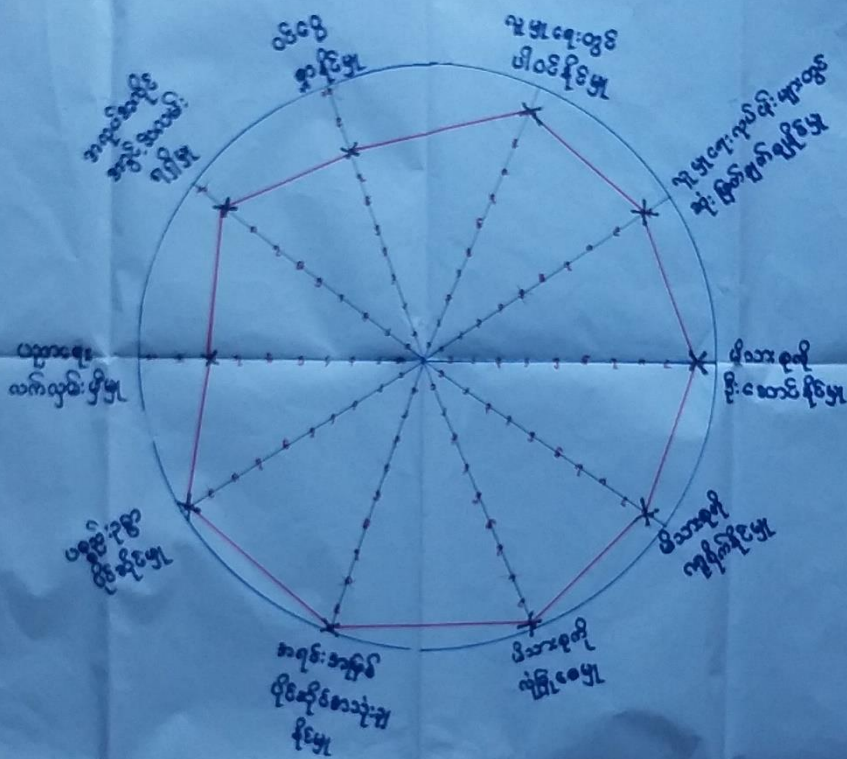 ဝင်ငွေ
ရှာနိုင်မှု
လူမှုရေးတွင်
ပါဝင်နိုင်မှု
လူမှုရေးလုပ်ငန်းများတွင်
ဆုံးဖြတ်ချက်ချနိုင်မှု
မိသားစုကို
ဦးဆောင်နိုင်မှု
မိသားစုကို
ကူရိုက်နိုင်မှု
မိသားစုကို
လုံခြုံစေမှု
အရင်းအမြစ်
ပိုင်ဆိုင်စာသုံးချ
နိုင်မှု
ပစ္စည်းဥစ္စာ
ပိုင်ဆိုင်မှု
ပညာရေး
လက်လှမ်းမှီမှု
အလုပ်အကိုင်
အခွင့်အလမ်း
ရရှိမှု